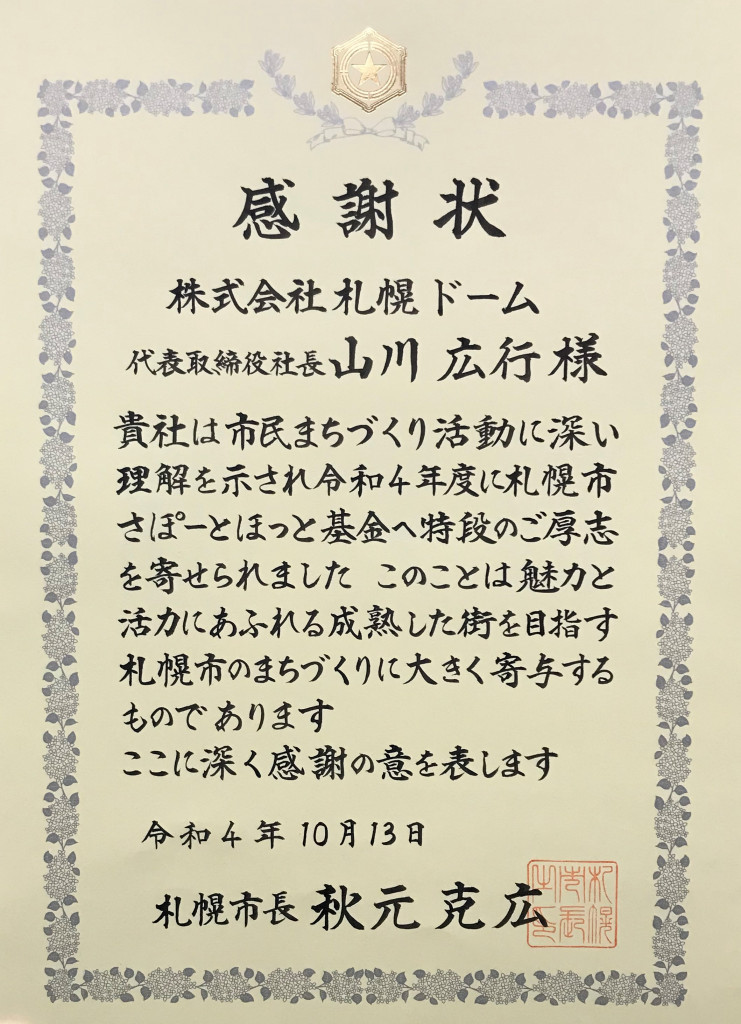 感謝状
株式会社札幌ドーム
代表取締役社長 山川 広行 様
貴社は市民まちづくり活動に深い
理解を示され令和4年度に札幌市
さぽーとほっと基金へ特段のご厚志
を寄せられました このことは魅力と
活力にあふれる成熟した街を目指す
札幌市のまちづくりに大きく寄与する
ものであります
ここに深く感謝の意を表します
令和4年10月13日
札幌市長 秋元 克広